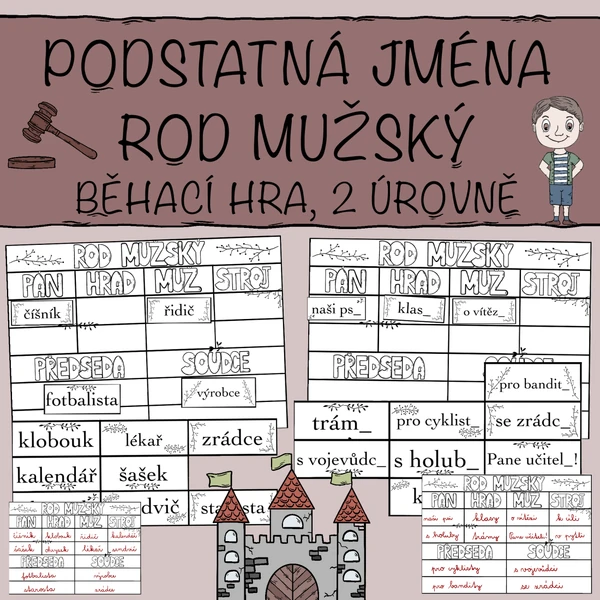 PODSTATNÁ JMÉNA
ROD MUŽSKÝ
BĚHACÍ HRA, 2 ÚROVNĚ
ROD MUŽSKÝ
PÁN HRAD MUŽ STROJ
číšník řidič
PŘEDSEDA SOUDCE
fotbalista výrobce
klobouk lékař zrádce
kalendář šašek
ROD MUŽSKÝ
PÁN HRAD MUŽ STROJ
naši ps_ klas_ o vítěz_
PŘEDSEDA
pro bandit_
trám_ pro cyklist_ se zrádc_
s vojevůdc_ s holub_ Pane učitel_!
ROD MUŽSKÝ
PÁN HRAD MUŽ STROJ
číšník klobouk řidič kalendář
šašek
PŘEDSEDA SOUDCE
fotbalista výrobce
starosta zrádce
ROD MUŽSKÝ
PÁN HRAD MUŽ STROJ
naši psi klasy o vítězi
s holuby trámy Pane učiteli!
PŘEDSEDA SOUDCE
pro cyklisty s vojevůdci
pro bandity se zrádci